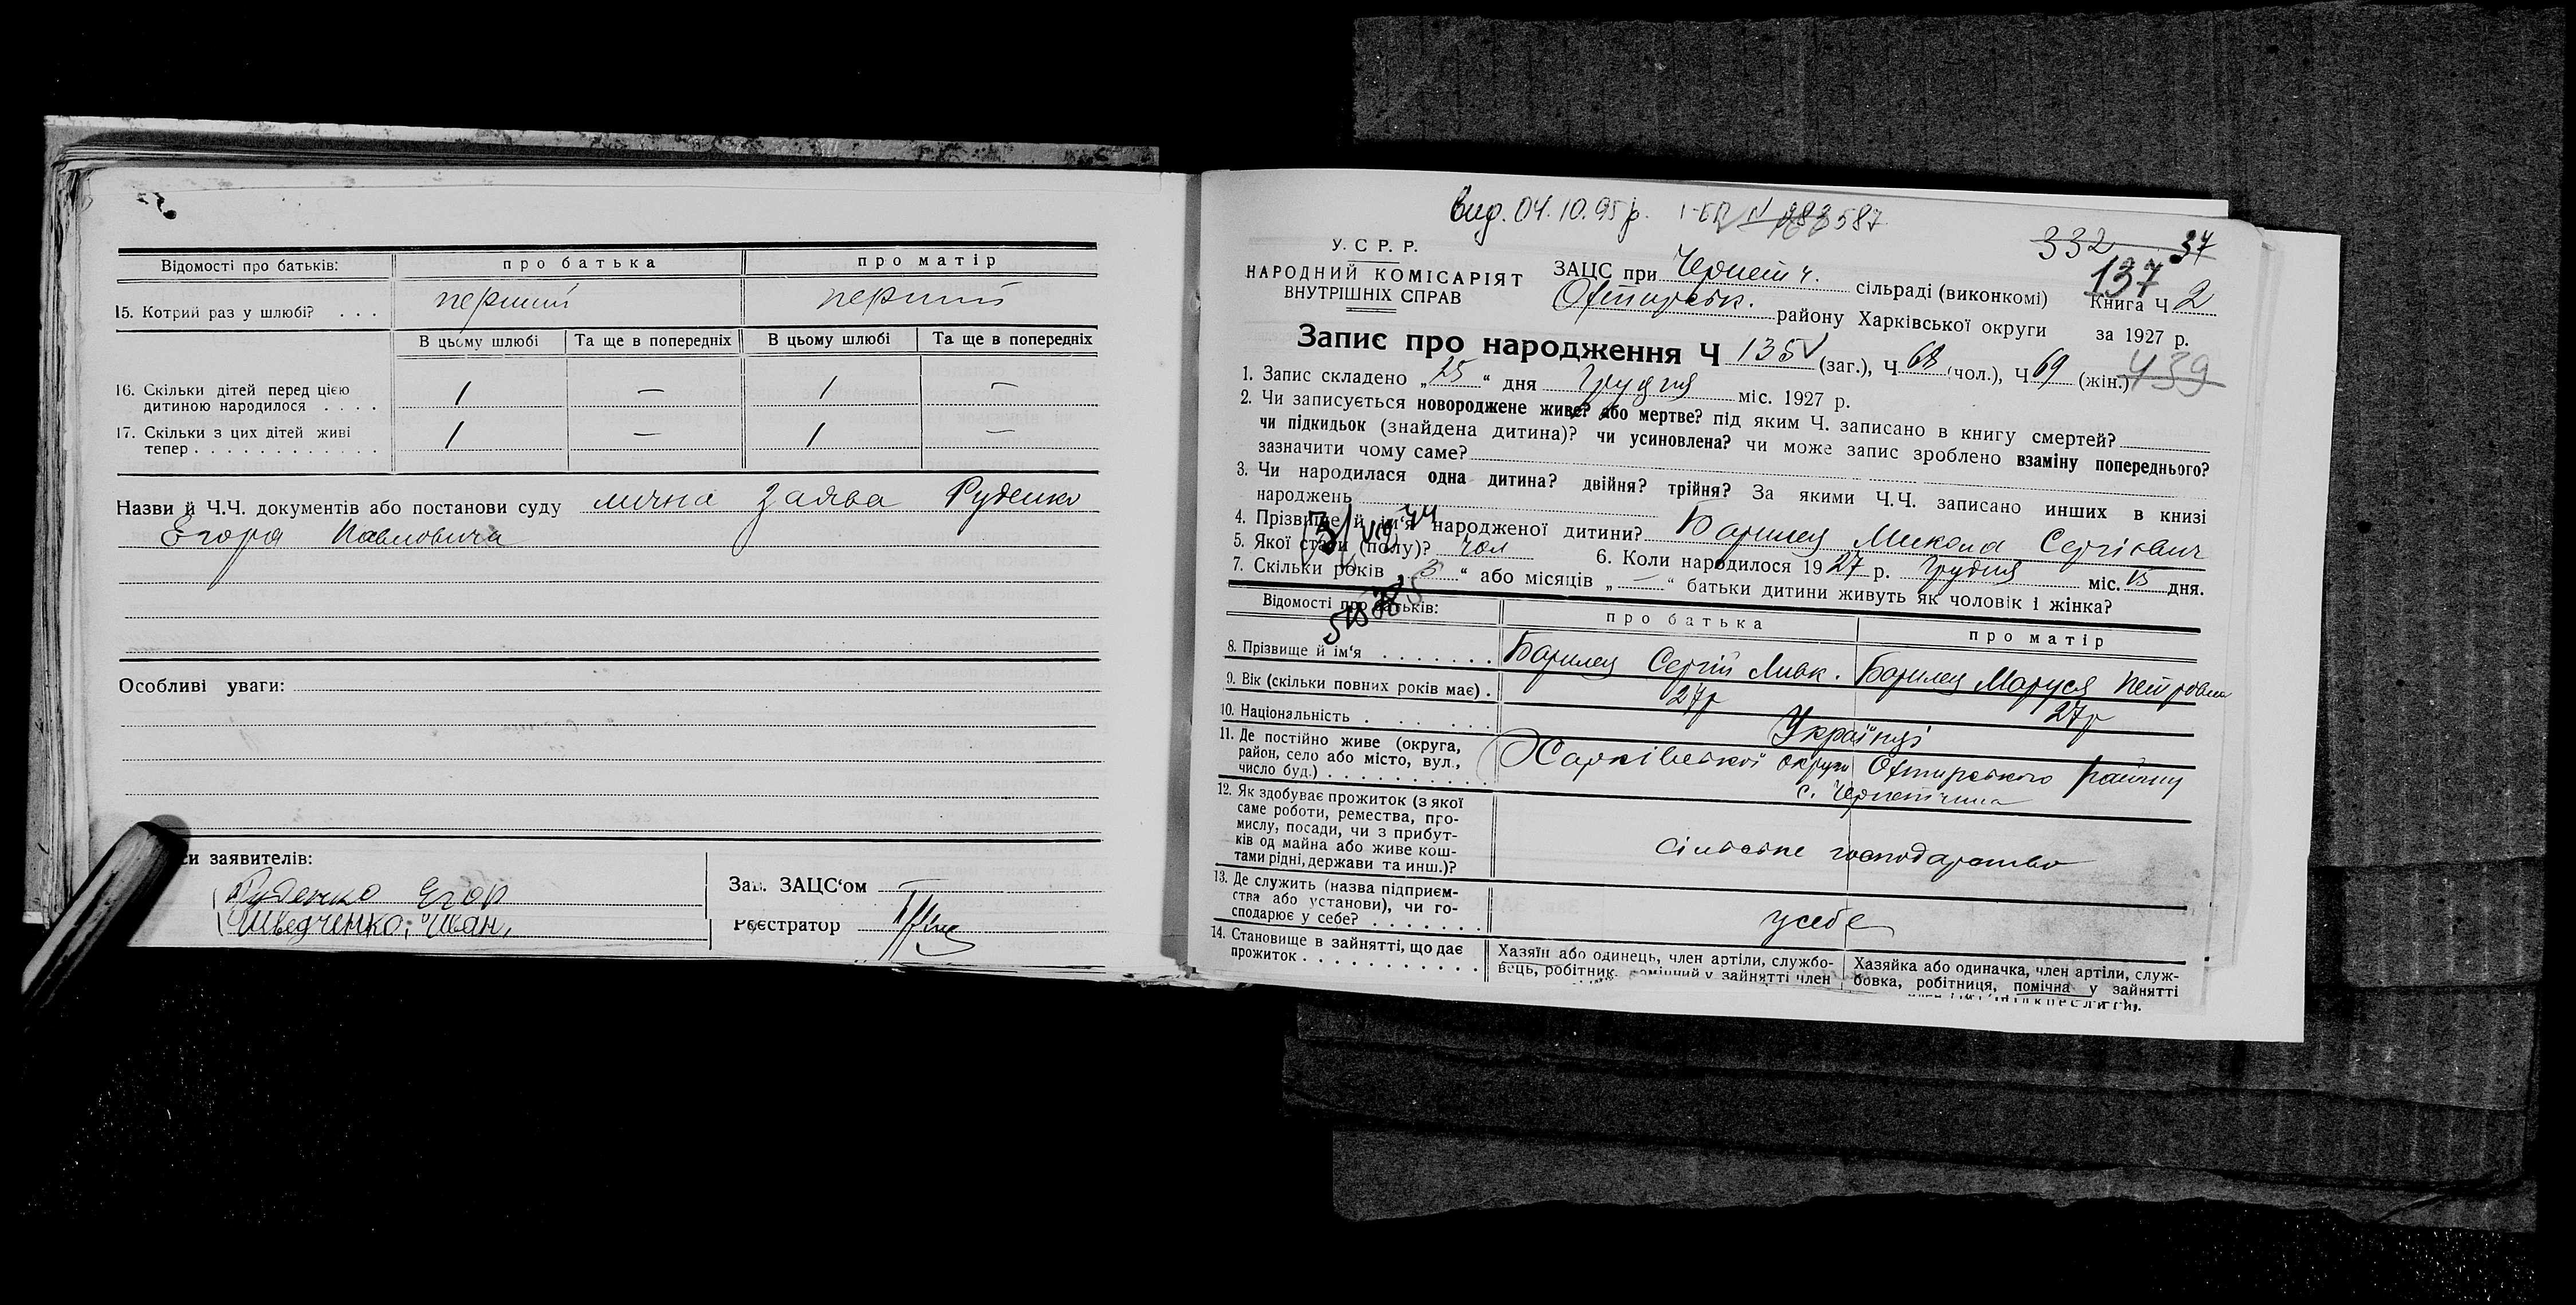 Відомості про батьків: про батька про матір
15. Котрий раз у шлюбі? . . . перший перший
В цьому шлюбі Та ще в попередніх В цьому шлюбі Та ще в попередніх
16. Скільки дітей перед цією
дитиною народилося . . . . 1 — 1 —
17. Скільки з цих дітей живі
тепер . . . . . . . . . . . . . 1 — 1 —
Назви й Ч.Ч. документів або постанови суду лична заява Руденко
Егора Павловича
Особливі уваги:
си заявителів:
Руденко Егор
Шведченко, Иван,
Зав. ЗАЦС‘ом
Реєстратор
вид. 04.10.95р. 587
332 37
137
У.С Р. Р.
НАРОДНИЙ КОМІСАРІЯТ
ВНУТРІШНІХ СПРАВ
ЗАЦС при Чернетч. сільраді (виконкомі) Книга Ч 2
Охтирськ. району Харківської округи за 1927 р.
Запис про народження Ч 135 (заг.), Ч 68 (чол.), Ч 69 (жін.) 439
1. Запис складено „25“ дня Грудня міс. 1927 р.
2. Чи записується новороджене живе? або мертве? під яким Ч. записано в книгу смертей?
чи підкидьок (знайдена дитина)? чи усиновлена? чи може запис зроблено взаміну попереднього?
зазначити чому саме?
3. Чи народилася одна дитина? двійня? трійня? За якими Ч.Ч. записано инших в книзі
народжень
4. Прізвище й ім‘я народженої дитини? Барилец Микола Сергієвич
5. Якої стати (полу)? чол 6. Коли народилося 1927 р. Грудня міс. 15 дня.
7. Скільки років „3“ або місяців „—“ батьки дитини живуть як чоловік і жінка?
Відомості про батьків: про батька про матір
8. Прізвище й ім‘я . . . . . . . Барилец Сергій Мик. Барилец Маруся Петровна
9. Вік (скільки повних років має) . 27р 27р
10. Національність . . . . . . Українці
11. Де постійно живе (округа,
район, село або місто, вул.,
число буд.) . . . . . . . . . . Харківської округи Охтирського району
с. Чернетчина
12. Як здобуває прожиток (з якої
саме роботи, ремества, про-
мислу, посади, чи з прибут-
ків од майна або живе кош-
тами рідні, держави та инш.)? сільське господарство
13. Де служить (назва підприєм-
ства або установи), чи го-
сподарює у себе? . . . . . . . усебе
14. Становище в зайнятті, що дає
прожиток . . . . . . . . . . . .
Хазяїн або одинець, член артіли, службо-
вець, робітник, помічний у зайнятті член
Хазяйка або одиначка, член артіли, служ-
бовка, робітниця, помічна у зайнятті